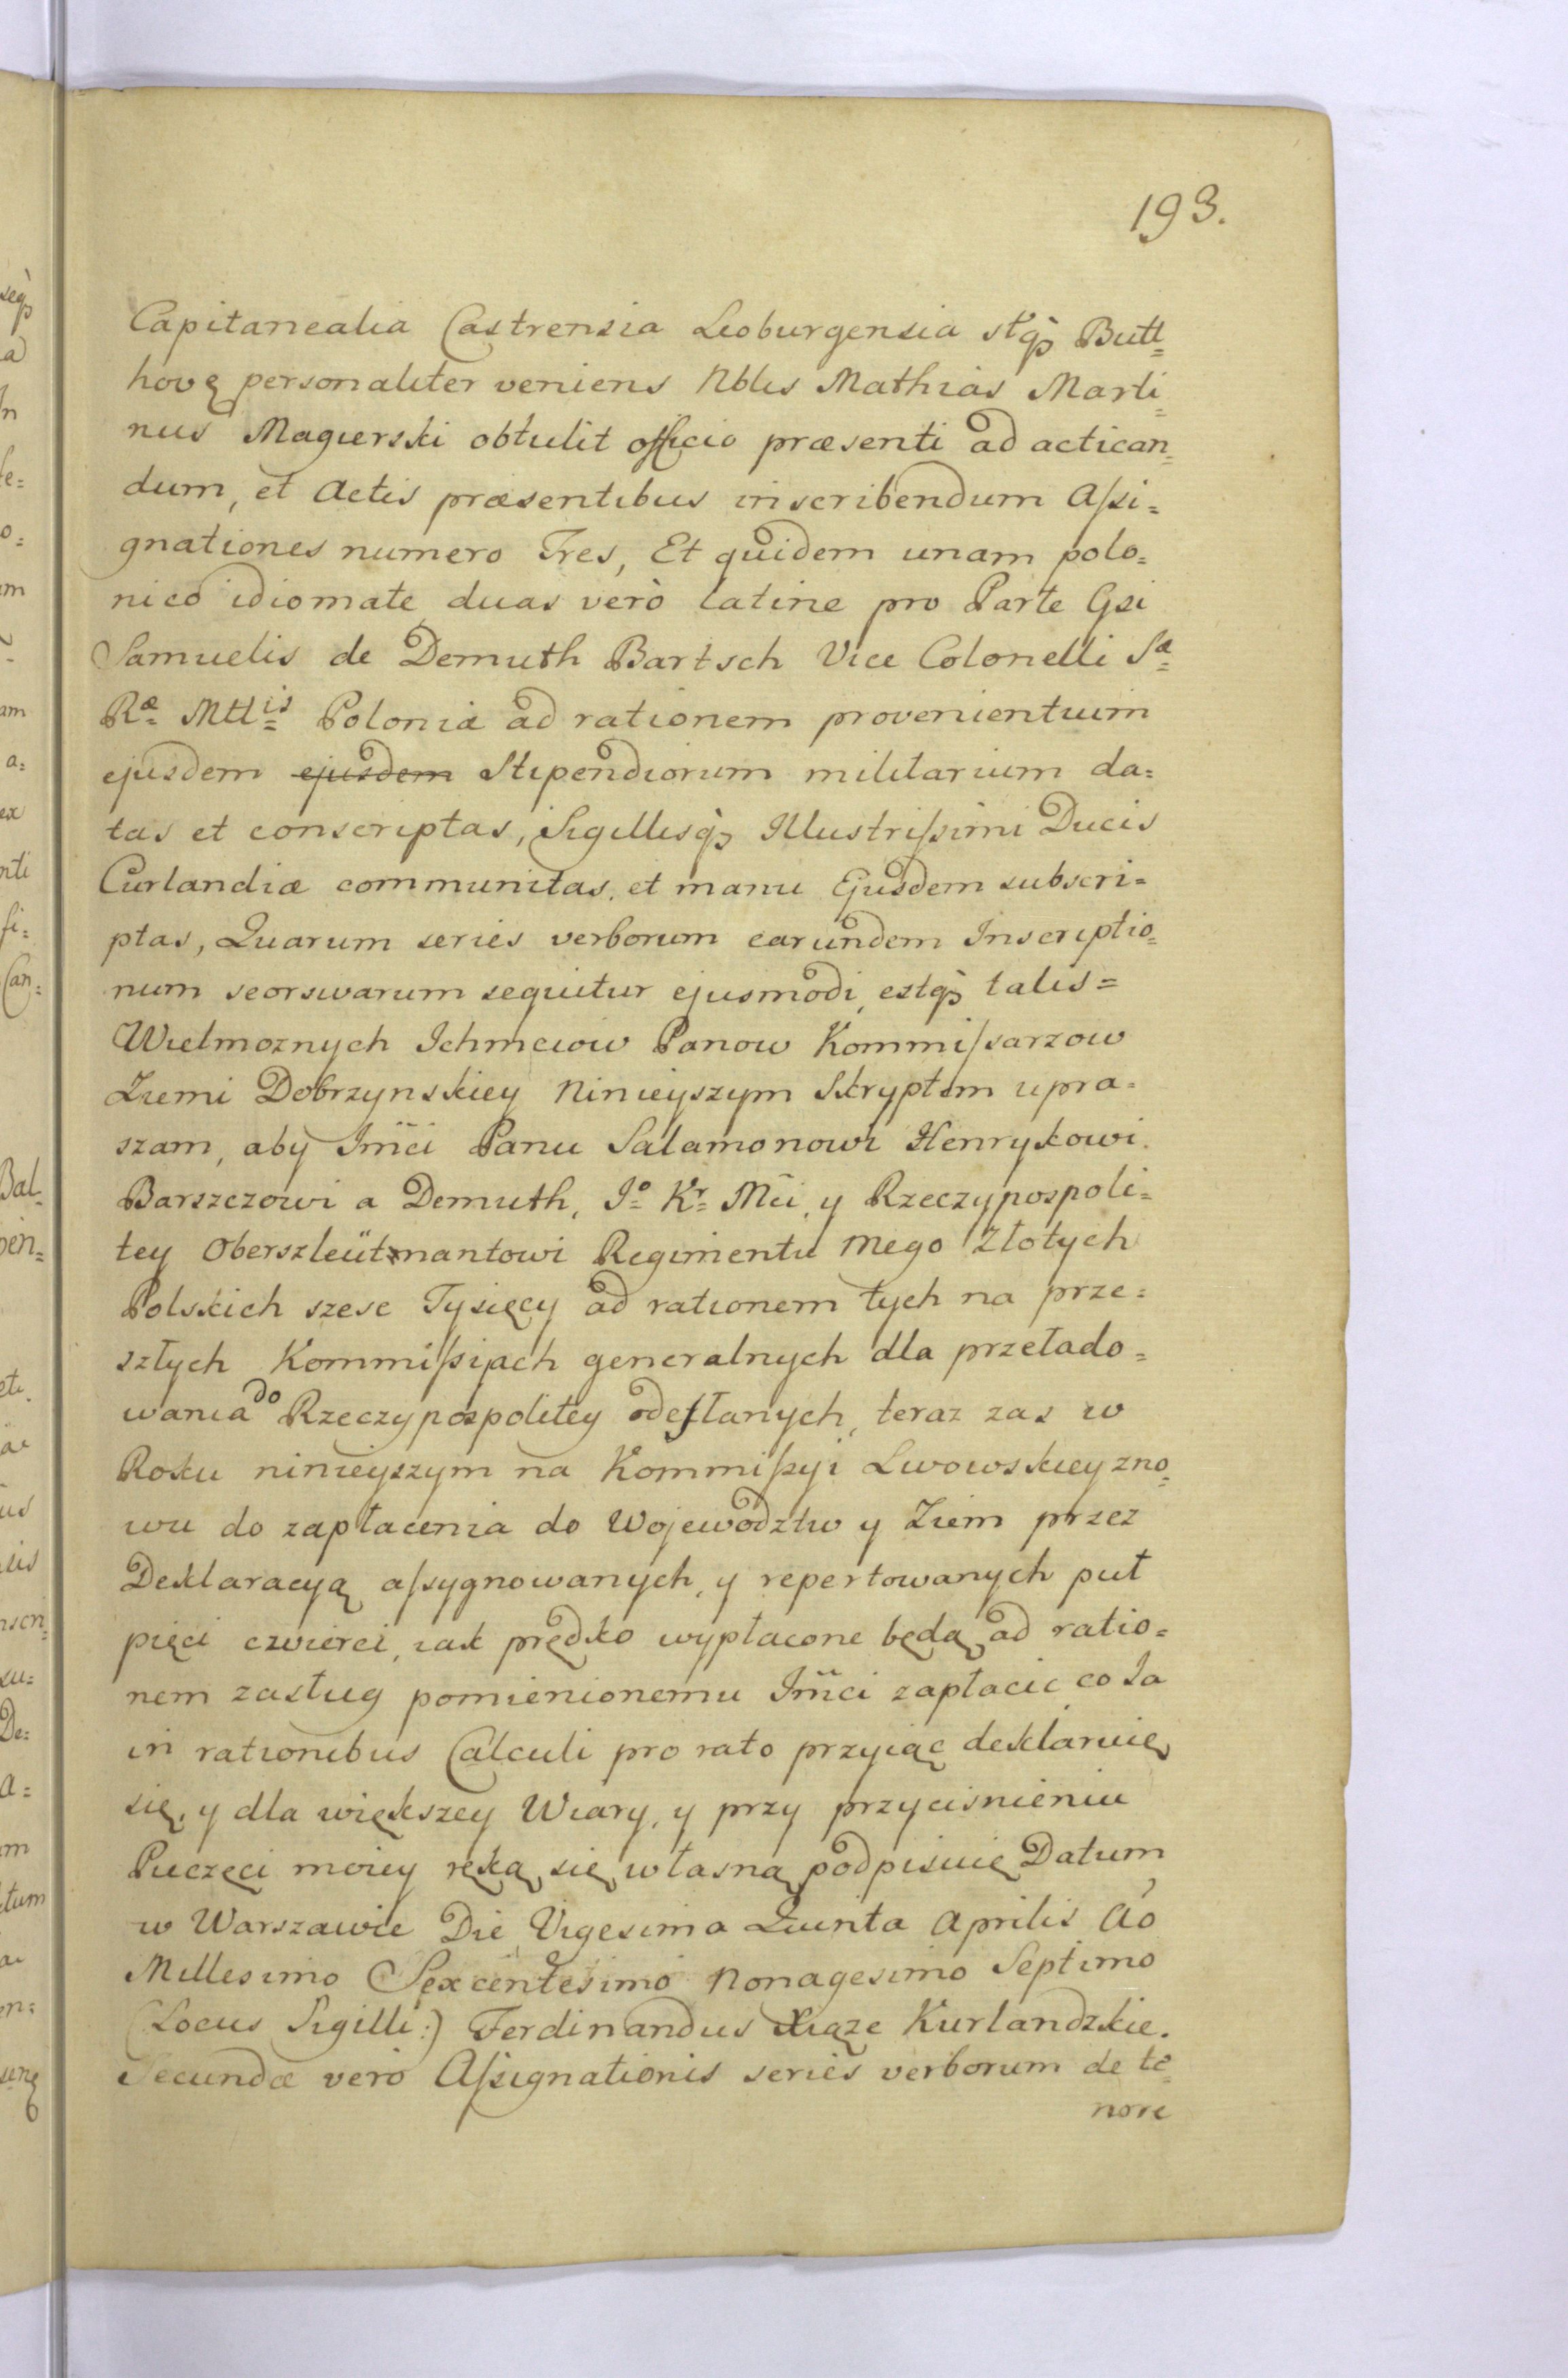 193.
Capitanealia Castrensia Leoburgensia stq́ Butt=
hovę personaliter veniens Nbls Mathias Marti=
nus Magierski obtulit officio præsenti ad actican=
dum, et Actis præsentibus inscribendum Aſsi=
gnationes numero Tres, Et quidem unam polo=
nico idiomate duas verò latine pro Parte Gsi
Samuelis de Demuth Bartsch Vice Colonelli Sæ
Ræ Mttis Poloniæ ad rationem provenientium
ejusdem ejusdem Stipendiorum militarium da=
tas et conscriptas, Sigillisq́ Illustriſsimi Ducis
Curlandiæ communitas, et manu Ejusdem subscri=
ptas, Quarum series verborum earundem Inscriptio=
num seorsivarum sequitur ejusmodi, estq́ talis =
Wielmoznych Ichmciow Panow Kommiſsarzow
Ziemi Dobrzynskiey Ninieyszym Skryptem upra=
szam, aby Jm̃ci Panu Salamonowi Henrykowi
Barszczowi a Demuth, Jo Kr Mci, y Rzeczypospoli=
tey Oberszleütnantowi Regimentu mego Złotych
Polskich szesc Tysięcy ad rationem tych na prze=
szłych Kommiſsijach generalnych dla przełado=
wania do Rzeczypospolitey odeſłanych, teraz zas w
Roku ninieyszym na Kommiſsyi Lwowskiey zno=
wu do zapłacenia do Wojewodztw y Ziem przez
Deklaracyą aſsygnowanych, y repertowanych puł
pięci czwierci, iak prędko wypłacone będą, ad ratio=
nem zasług pomienionemu Jm̃ci zapłacic co Ja
in rationibus Calculi pro rato przyiąc deklaruię
się, y dla większey Wiary, y przy przycisnieniu
Pieczęci moiey ręką się własną podpisuię Datum
w Warszawie Die Vigesima Quinta Aprilis Ao
Millesimo Sexcentesimo Nonagesimo Septimo
(Locus Sigilli:) Ferdinandus Xiąze Kurlandzkie.
Secundæ vero Aſsignationis series verborum de te=
nore